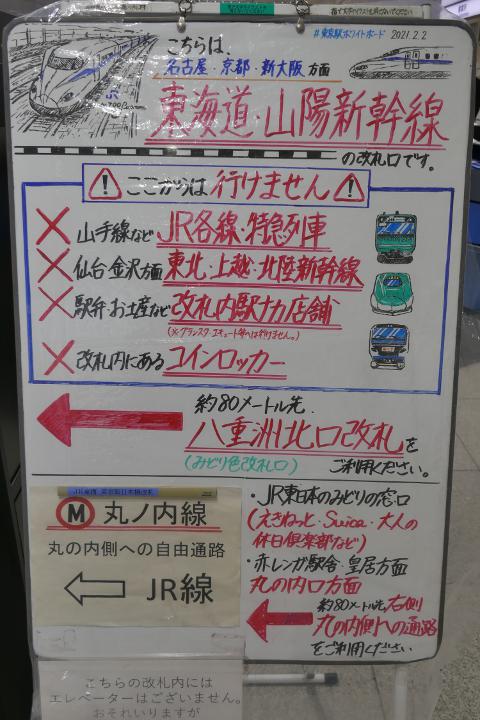 #東京駅ホワイトボード 2021.2.2
こちらは、
名古屋・京都・新大阪 方面
東海道・山陽新幹線
の改札口です。
ここからは 行けません
山手線など JR各線・特急列車
仙台・金沢方面 東北・上越・北陸新幹線
駅弁・お土産など 改札内駅ナカ店舗
(※グランスタ・エキュート等へは行けません。)
改札内にある コインロッカー
約80メートル先、
八重洲北口改札を
(みどり色改札口) ご利用ください。
M 丸ノ内線
丸の内側への自由通路
JR線
・JR東日本のみどりの窓口
(えきねっと・Suica・大人の
休日倶楽部など)
・赤レンガ駅舎・皇居方面
丸の内口方面
約80メートル先、右側
丸の内側への通路
をご利用ください
こちらの改札内には
エレベーターはございません。
おそれいりますが